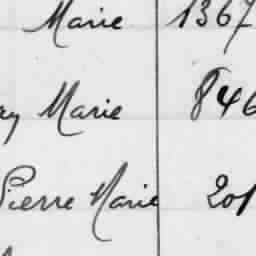 Marie 1367
ry Marie 846
Pierre Marie 201